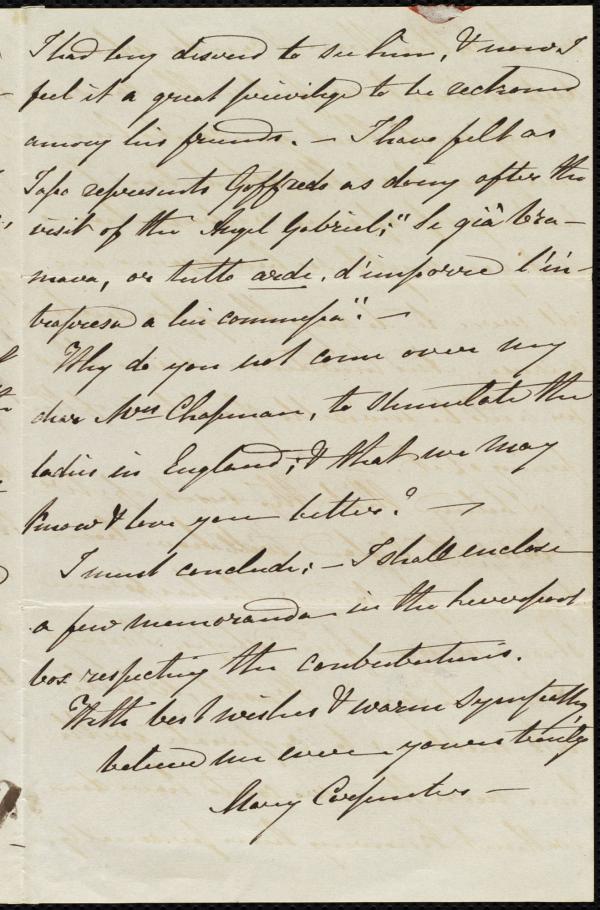 I had long desired to see him, & now I
feel it a great privilege to be reckoned
among his friends. — I have felt as
Tasso represents Goffredo as doing after the
visit of the Angel Gabriel; "Se già bra-
mava, or tutto arde, d'imporre l'in-
trapresa a lui commessa". —
Why do you not come over my
dear Mrs Chapman, to stimulate the
ladies in England; & that we may
know & love you better? —
I must conclude; — I shall enclose
a few memoranda in the Liverpool
box respecting the contributions.
With best wishes & warm sympathy,
believe me ever yours truly
Mary Carpenter —